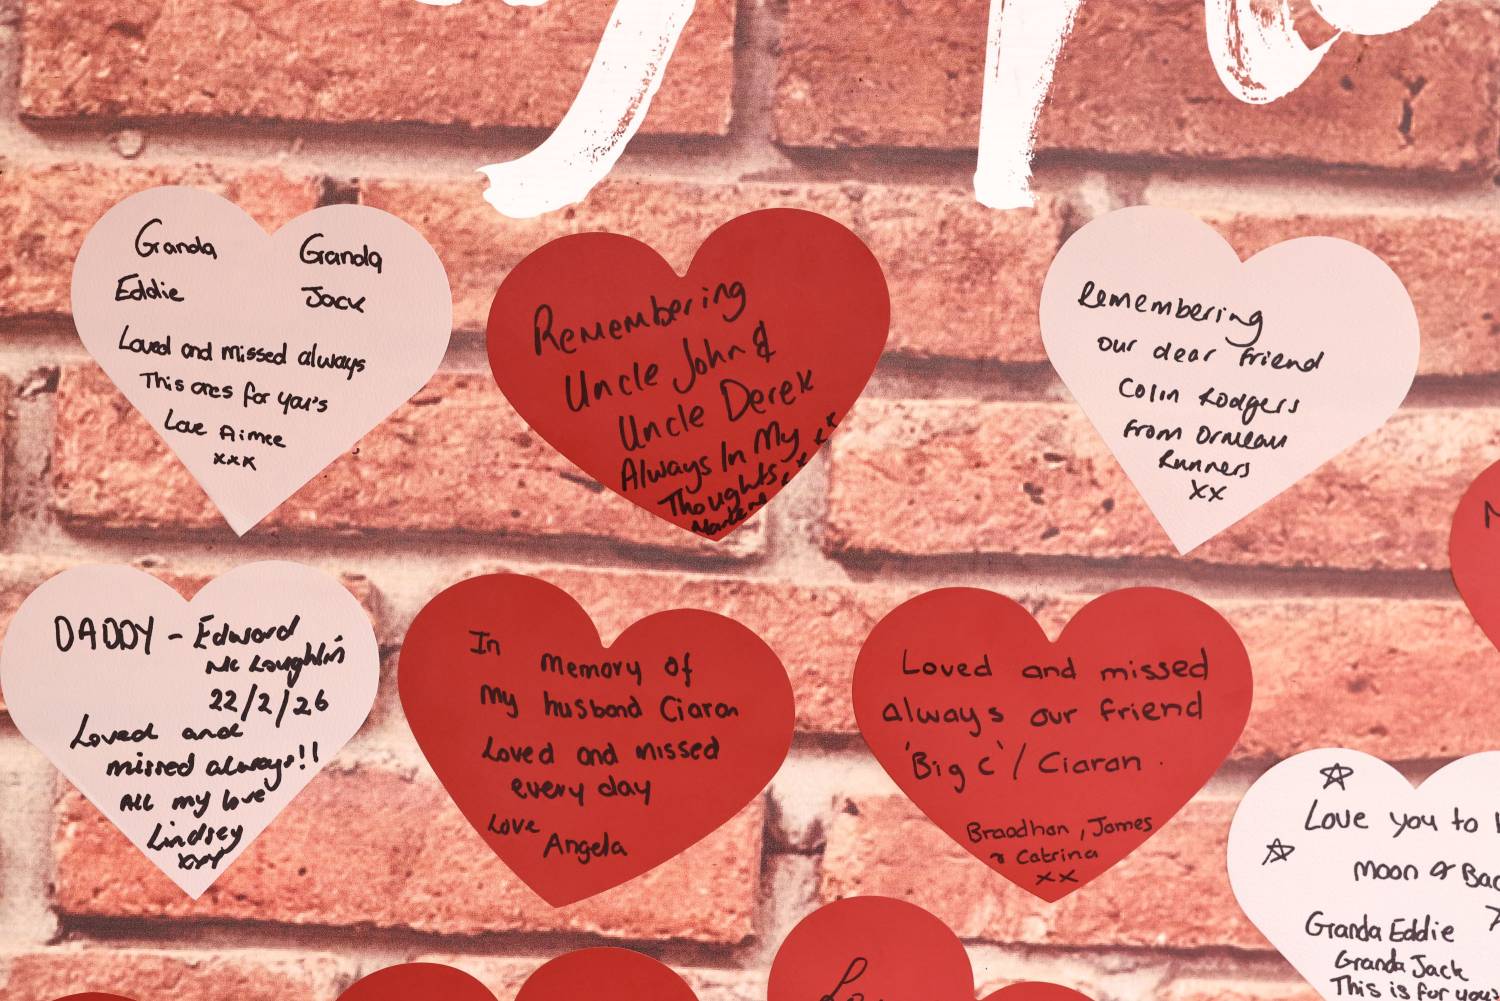 Granda Granda
Eddie Jack
Loved and missed always
This ones for you's
Love Aimee
xxx
Remembering
Uncle John &
Uncle Derek
Always In My
Thoughts
Remembering
our dear friend
Colin Rodgers
From Ormeau
Runners
XX
DADDY - Edward
Mc Loughlin
22/2/26
Loved and
missed always!!
All my love
Lindsey
xxx
In
memory of
my husband Ciaran
Loved and missed
every day
Love
Angela
Loved and missed
always our friend
'Big C'/ Ciaran.
Braodhan, James
& Catrina
xx
Love you to
moon & Bac
Granda Eddie
Granda Jack
This is for you
Lo